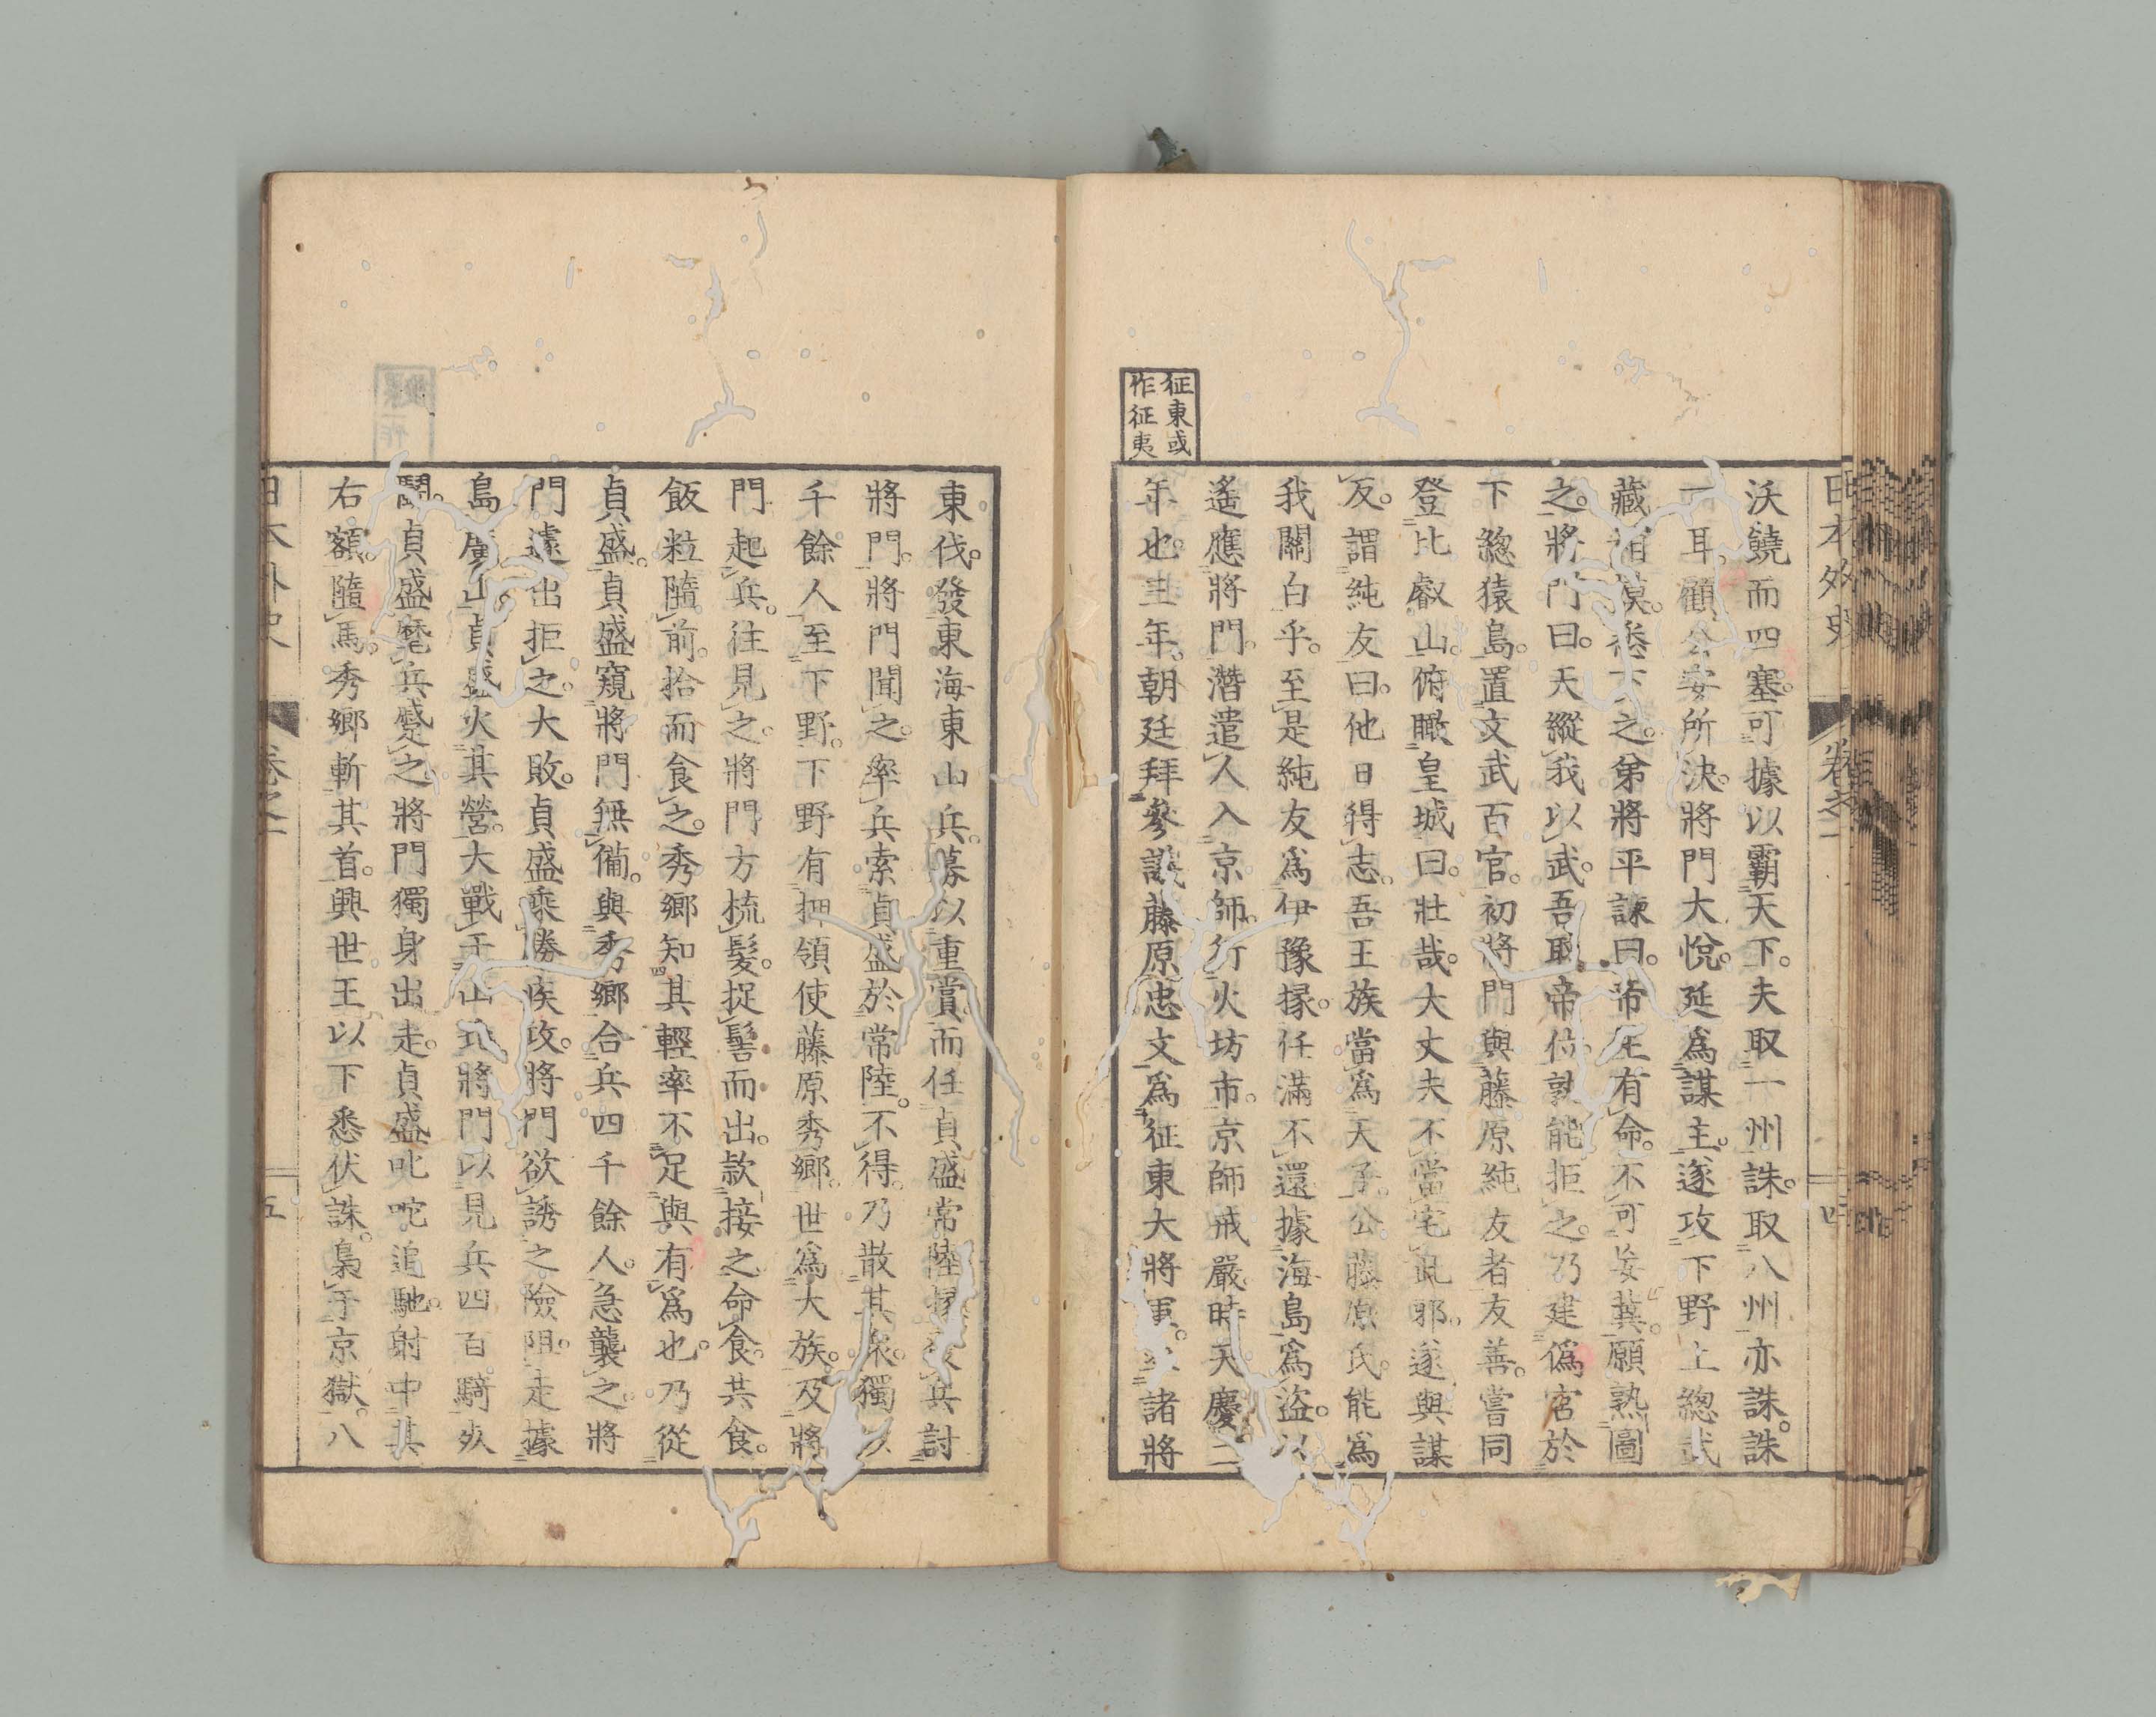 日本外史
卷之一
四
沃饒而四塞。可據以霸天下。夫取一州誅。取八州亦誅。誅
一耳。顧公安所決。將門大悅。延爲謀主。遂攻下野上總武
藏相模。悉下之。弟將平諫曰。帝王有命。不可妄冀。願熟圖
之。將門曰。天縱我以武。吾取帝位。孰能拒之。乃建僞宮於
下總猿島。置文武百官。初將門與藤原純友者友善。嘗同
登比叡山。俯瞰皇城曰。壯哉。大丈夫不當宅此邪。遂與謀
反。謂純友曰。他日得志。吾王族當爲天子。公藤原氏。能爲
我關白乎。至是純友爲伊豫掾。任滿不還。據海島爲盜。以
遙應將門。潛遣人入京師。行火坊市。京師戒嚴。時天慶二
年也。三年。朝廷拜參議藤原忠文爲征東大將軍。率諸將
征東或
作征夷
東伐。發東海東山兵。募以重賞。而任貞盛常陸掾。發兵討
將門。將門聞之。率兵索貞盛於常陸。不得。乃散其衆。獨以
千餘人至下野。下野有押領使藤原秀鄉。世爲大族。及將
門起兵。往見之。將門方梳髮。捉髻而出。款接之。命食。共食。
飯粒隨前。拾而食之。秀鄉知其輕率不足與有爲也。乃從
貞盛。貞盛窺將門無備。與秀鄉合兵四千餘人。急襲之。將
門遽出拒之。大敗。貞盛乘勝疾攻。將門欲誘之險阻。走據
島廣山。貞盛火其營。大戰于山北。將門以見兵四百騎
鬪。貞盛麾兵蹙之。將門獨身出走。貞盛叱咤追馳。射中其
右額。隨馬。秀鄉斬其首。興世王以下悉伏誅。梟于京獄。八
日本外史
卷之一
五